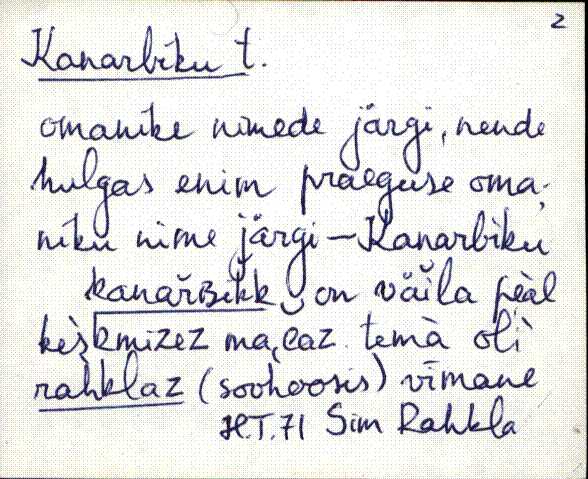 2
Kanarbiku t.
omanike nimede järgi, nende
hulgas enim praeguse oma-
niku nime järgi – Kanarbiku
kanařʙikk on vāi̬la pèäl
kèskmizez ma,eaz. temà olì
rahklaz (sovhoosis) vīmane
H.T. 71 Sim Rahkla